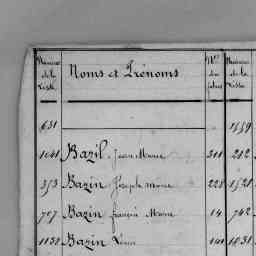 Numéros de la Liste Noms et Prénoms Nos du Numéros de la Liste
631 1559
1041 Bazil Jean Marie 311 212
353 Bazin Joseph marie 228 1521
727 Bazin françois Marie 14 742
1138 Bazin 1031